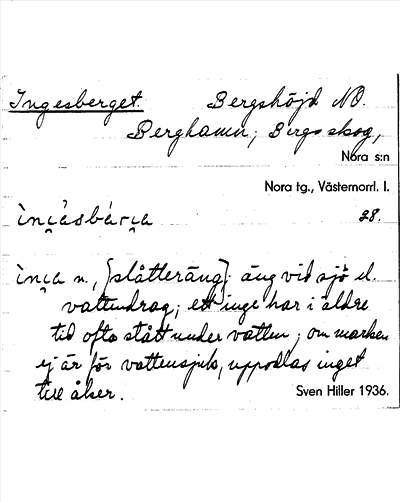 Ingesberget. Bergshöjd NO.
Berghamn; Bergs skog,
Nora s:n
Nora tg., Västernorrl. l.
28.
n., [slåtteräng]; äng vid sjö el.
vattendrag; ett inge har i äldre
tid ofta stått under vatten; om marken
ej är för vattensjuk, uppodlas inget
till åker. Sven Hiller 1936.